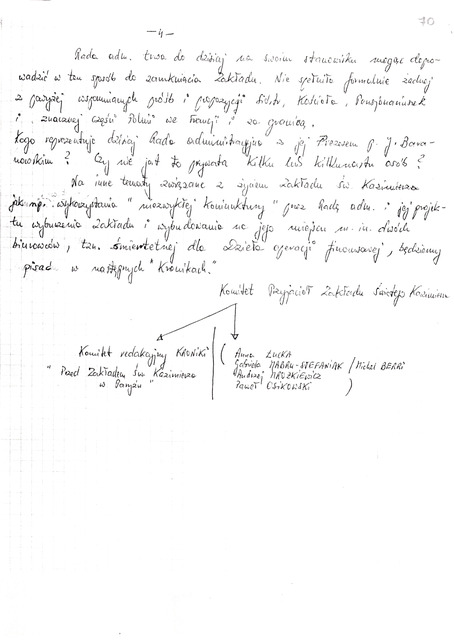 70
— 4 —
Rada adm. trwa do dzisiaj na swoim stanowisku mogąc dopro-
wadzić w ten sposób do zamknięcia Zakładu. Nie spełniła formalnie żadnej
z powyżej wspomnianych próśb i propozycji Sióstr, Kościoła, Pensjonariuszek
i znacznej części Polonii we Francji i za granicą.
Kogo reprezentuje dzisiaj Rada administracyjna z jej Prezesem p. J. Bara-
nowskim? Czy nie jest to prywata kilku lub kilkunastu osób?
Na inne tematy związane z życiem Zakładu św. Kazimierza
jak np. wykorzystania "niezwykłej koniunktury" przez Radę adm. i jej projek-
tu wyburzenia Zakładu i wybudowania na jego miejscu m. in. dwóch
biurowców, tzn. śmiertelnej dla Dzieła operacji finansowej, będziemy
pisać w następnych "Kronikach."
Komitet Przyjaciół Zakładu Świętego Kazimierza
Komitet redakcyjny KRONIKI
"Przed Zakładem Św. Kazimierza
w Paryżu"
( Anna ŁUCKA
Gabriela MABRU-STEFANIAK / Michel BERRI
Andrzej MROZKIEWICZ
Paweł OSIKOWSKI )